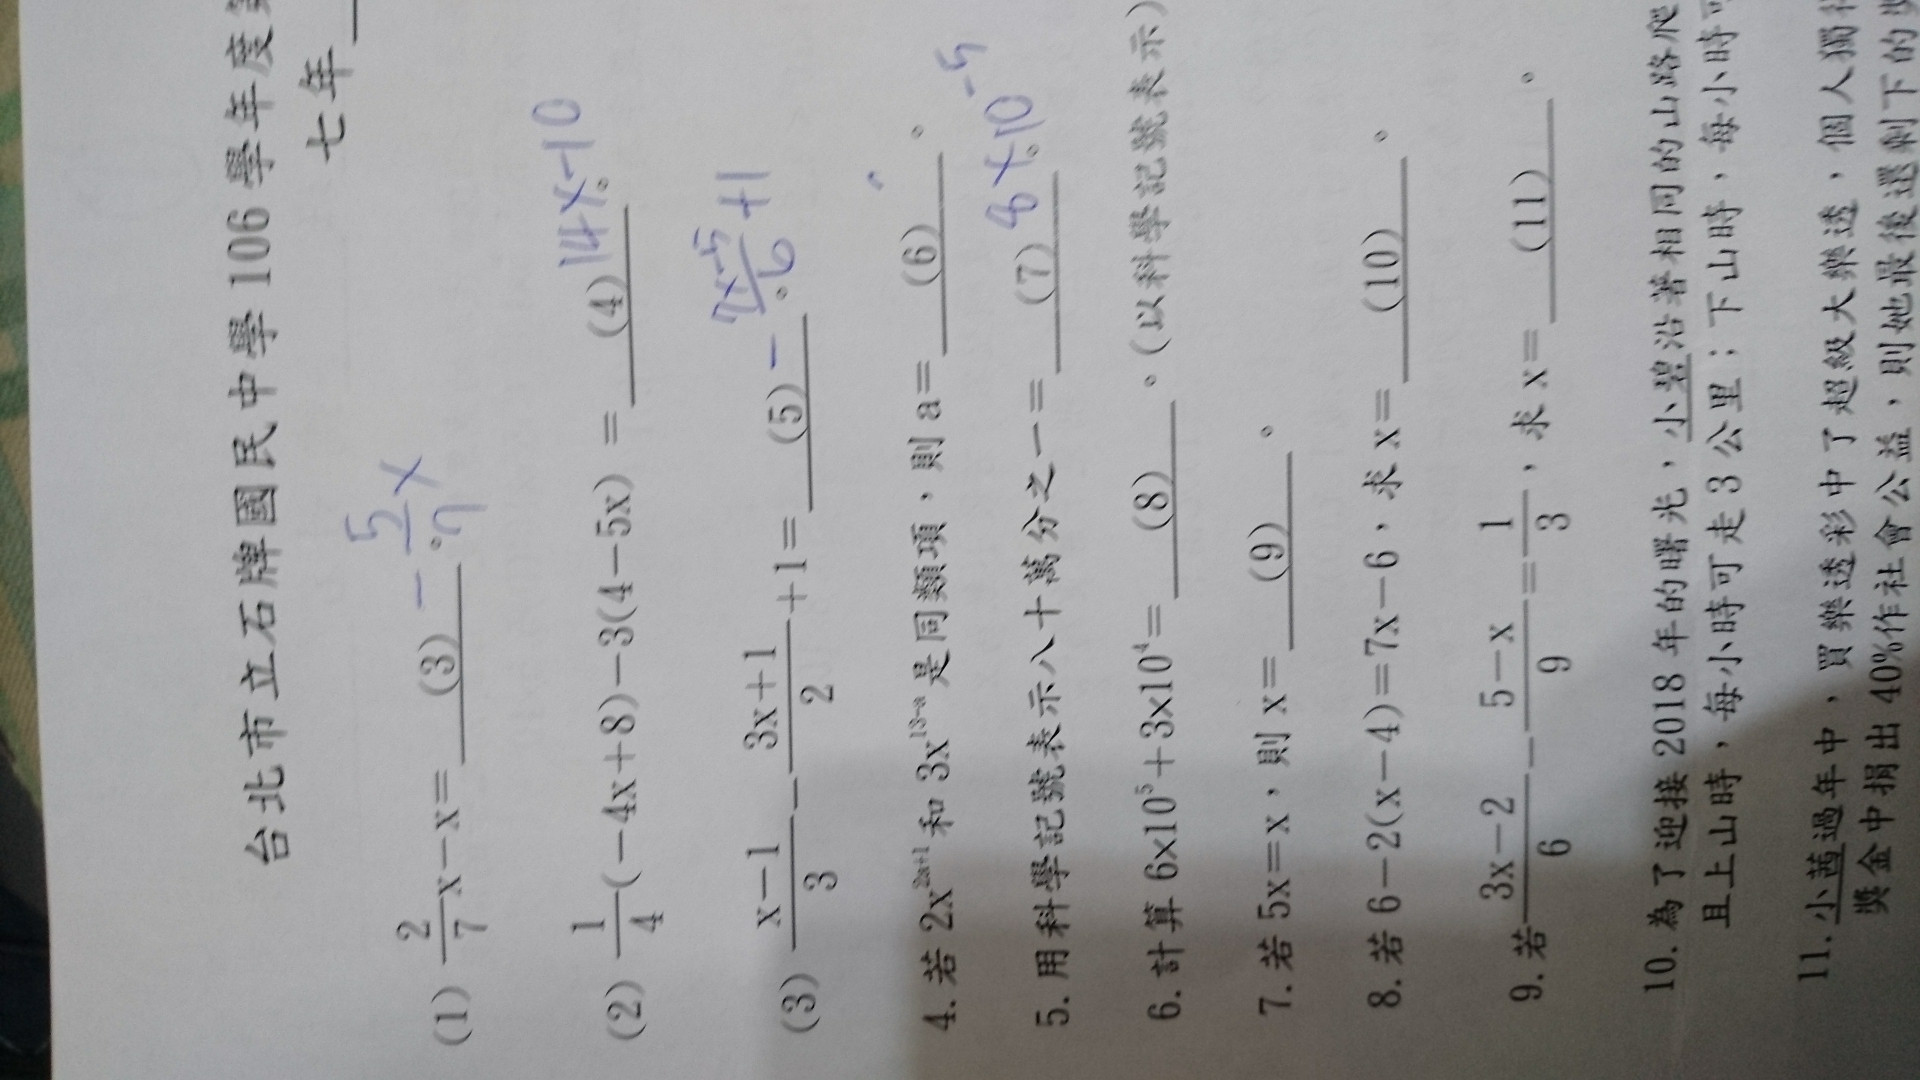 台北市立石牌國民中學 106 學年度
七年
(1) 2/7 x－x＝ (3) 。 －5/7 x
(2) 1/4 (－4x＋8)－3(4－5x) ＝ (4) 。 14x－10
(3) x－1/3 － 3x＋1/2 ＋1＝ (5) 。 － 7x－5/6 ＋1
4. 若 2x²ᵃ⁺¹ 和 3x¹³⁻ᵃ 是同類項，則 a＝ (6) 。
5. 用科學記號表示八十萬分之一＝ (7) 。 8×10⁻⁵
6. 計算 6x10⁵＋3x10⁴＝ (8) 。(以科學記號表示)
7. 若 5x＝x，則 x＝ (9) 。
8. 若 6－2(x－4)＝7x－6，求 x＝ (10) 。
9. 若 3x－2/6 － 5－x/9 ＝ 1/3 ，求 x＝ (11) 。
10. 為了迎接 2018 年的曙光，小碧沿著相同的山路爬
且上山時，每小時可走 3 公里；下山時，每小時可
11. 小茜過年中，買樂透彩中了超級大樂透，個人獨
獎金中捐出 40%作社會公益，則她最後還剩下的獎